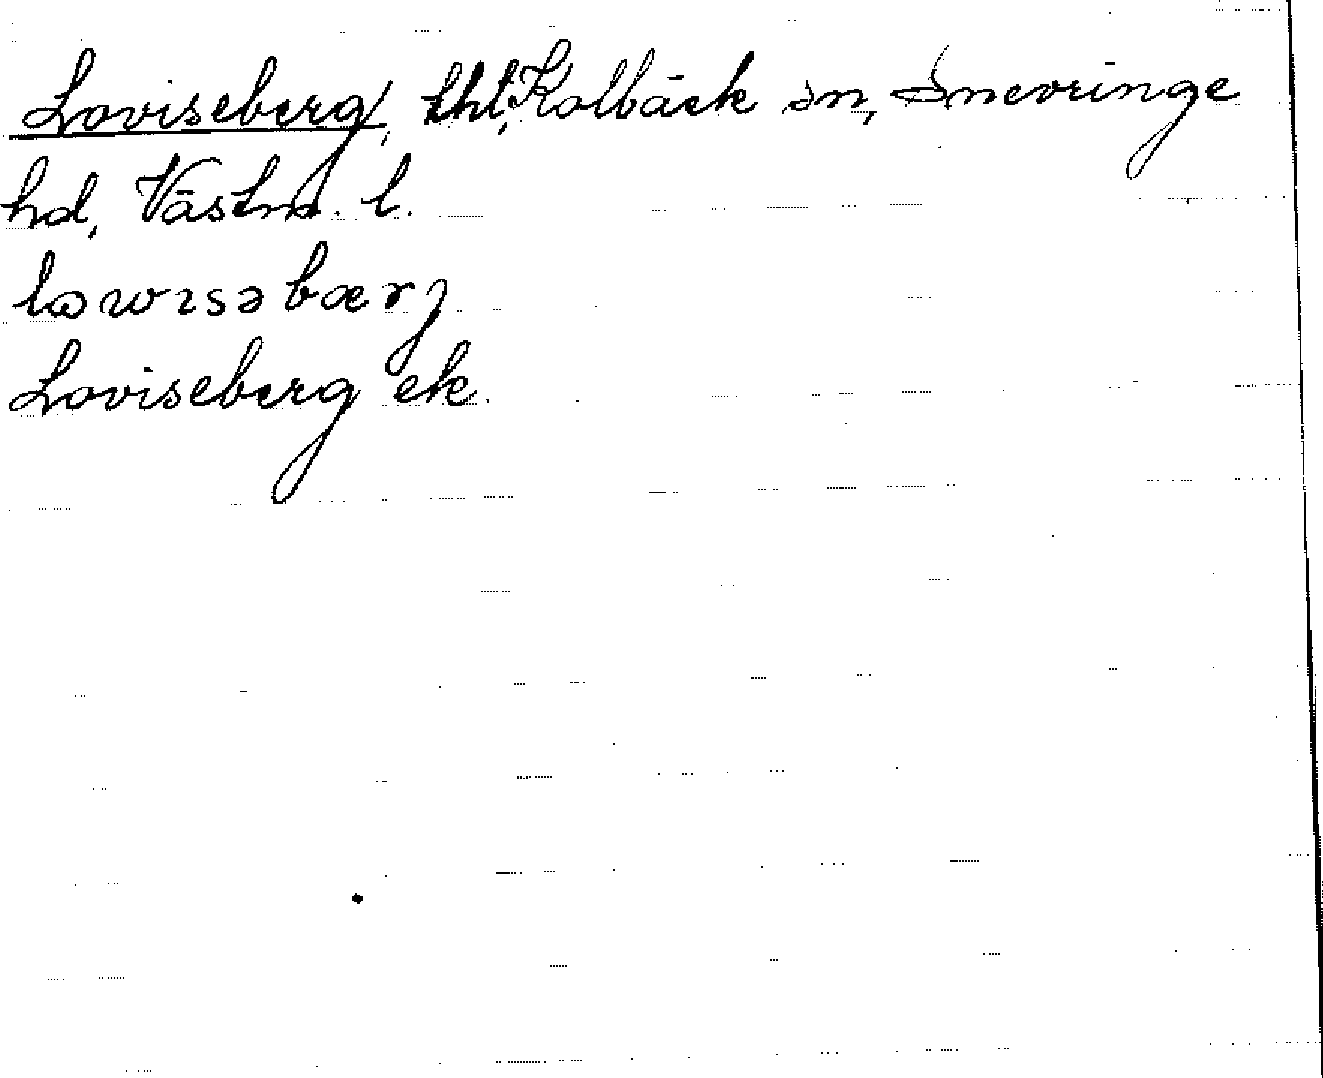 Loviseberg, thl, Kolbäck sn, Snevringe
hd, Västm. l.
lɷwısəbærj
Loviseberg ek.